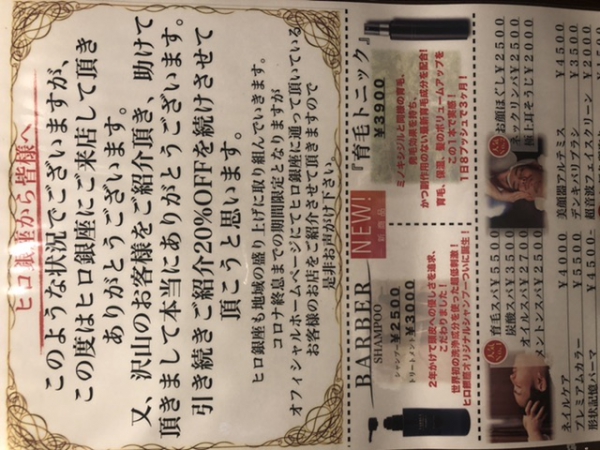 ヒロ銀座から皆様へ
このような状況でございますが、
この度はヒロ銀座にご来店して頂き
ありがとうございます。
又、沢山のお客様をご紹介頂き、助けて
頂きまして本当にありがとうございます。
引き続きご紹介20%OFFを続けさせて
頂こうと思います。
ヒロ銀座も地域の盛り上げに取り組んでいきます。
コロナ終息までの期間限定となりますが
オフィシャルホームページにてヒロ銀座に通って頂いている
お客様のお店をご紹介させて頂きますので
是非お声がけ下さい。
『育毛トニック』
¥3900
ミノキシジルと同様の育毛、
発毛効果を持ち、
かつ副作用のない最新育毛成分を配合!
育毛、保湿、髪のボリュームアップを
この1本で実感!
1日8プッシュで3ヶ月!
NEW!
新商品
BARBER
SHAMPOO
シャンプー ¥2500
トリートメント ¥3000
2年かけて頭皮への優しさを追求、
こだわりました!
世界初の洗浄成分を使った超低刺激!
ヒロ銀座オリジナルシャンプーついに誕生!
お顔ほぐし¥2500
ネックリンパ¥2500
極上耳そうじ¥2000
美顔器マルチミス ¥4500
デンキバリブラス ¥3500
超音波フェイスクリーン ¥2000
育毛スパ¥5500
炭酸スパ¥3500
オイルスパ¥2700
メントンスパ¥2500
ネイルケア ¥4000
プレミアムカラー ¥5500
形状記憶パーマ ¥4500-